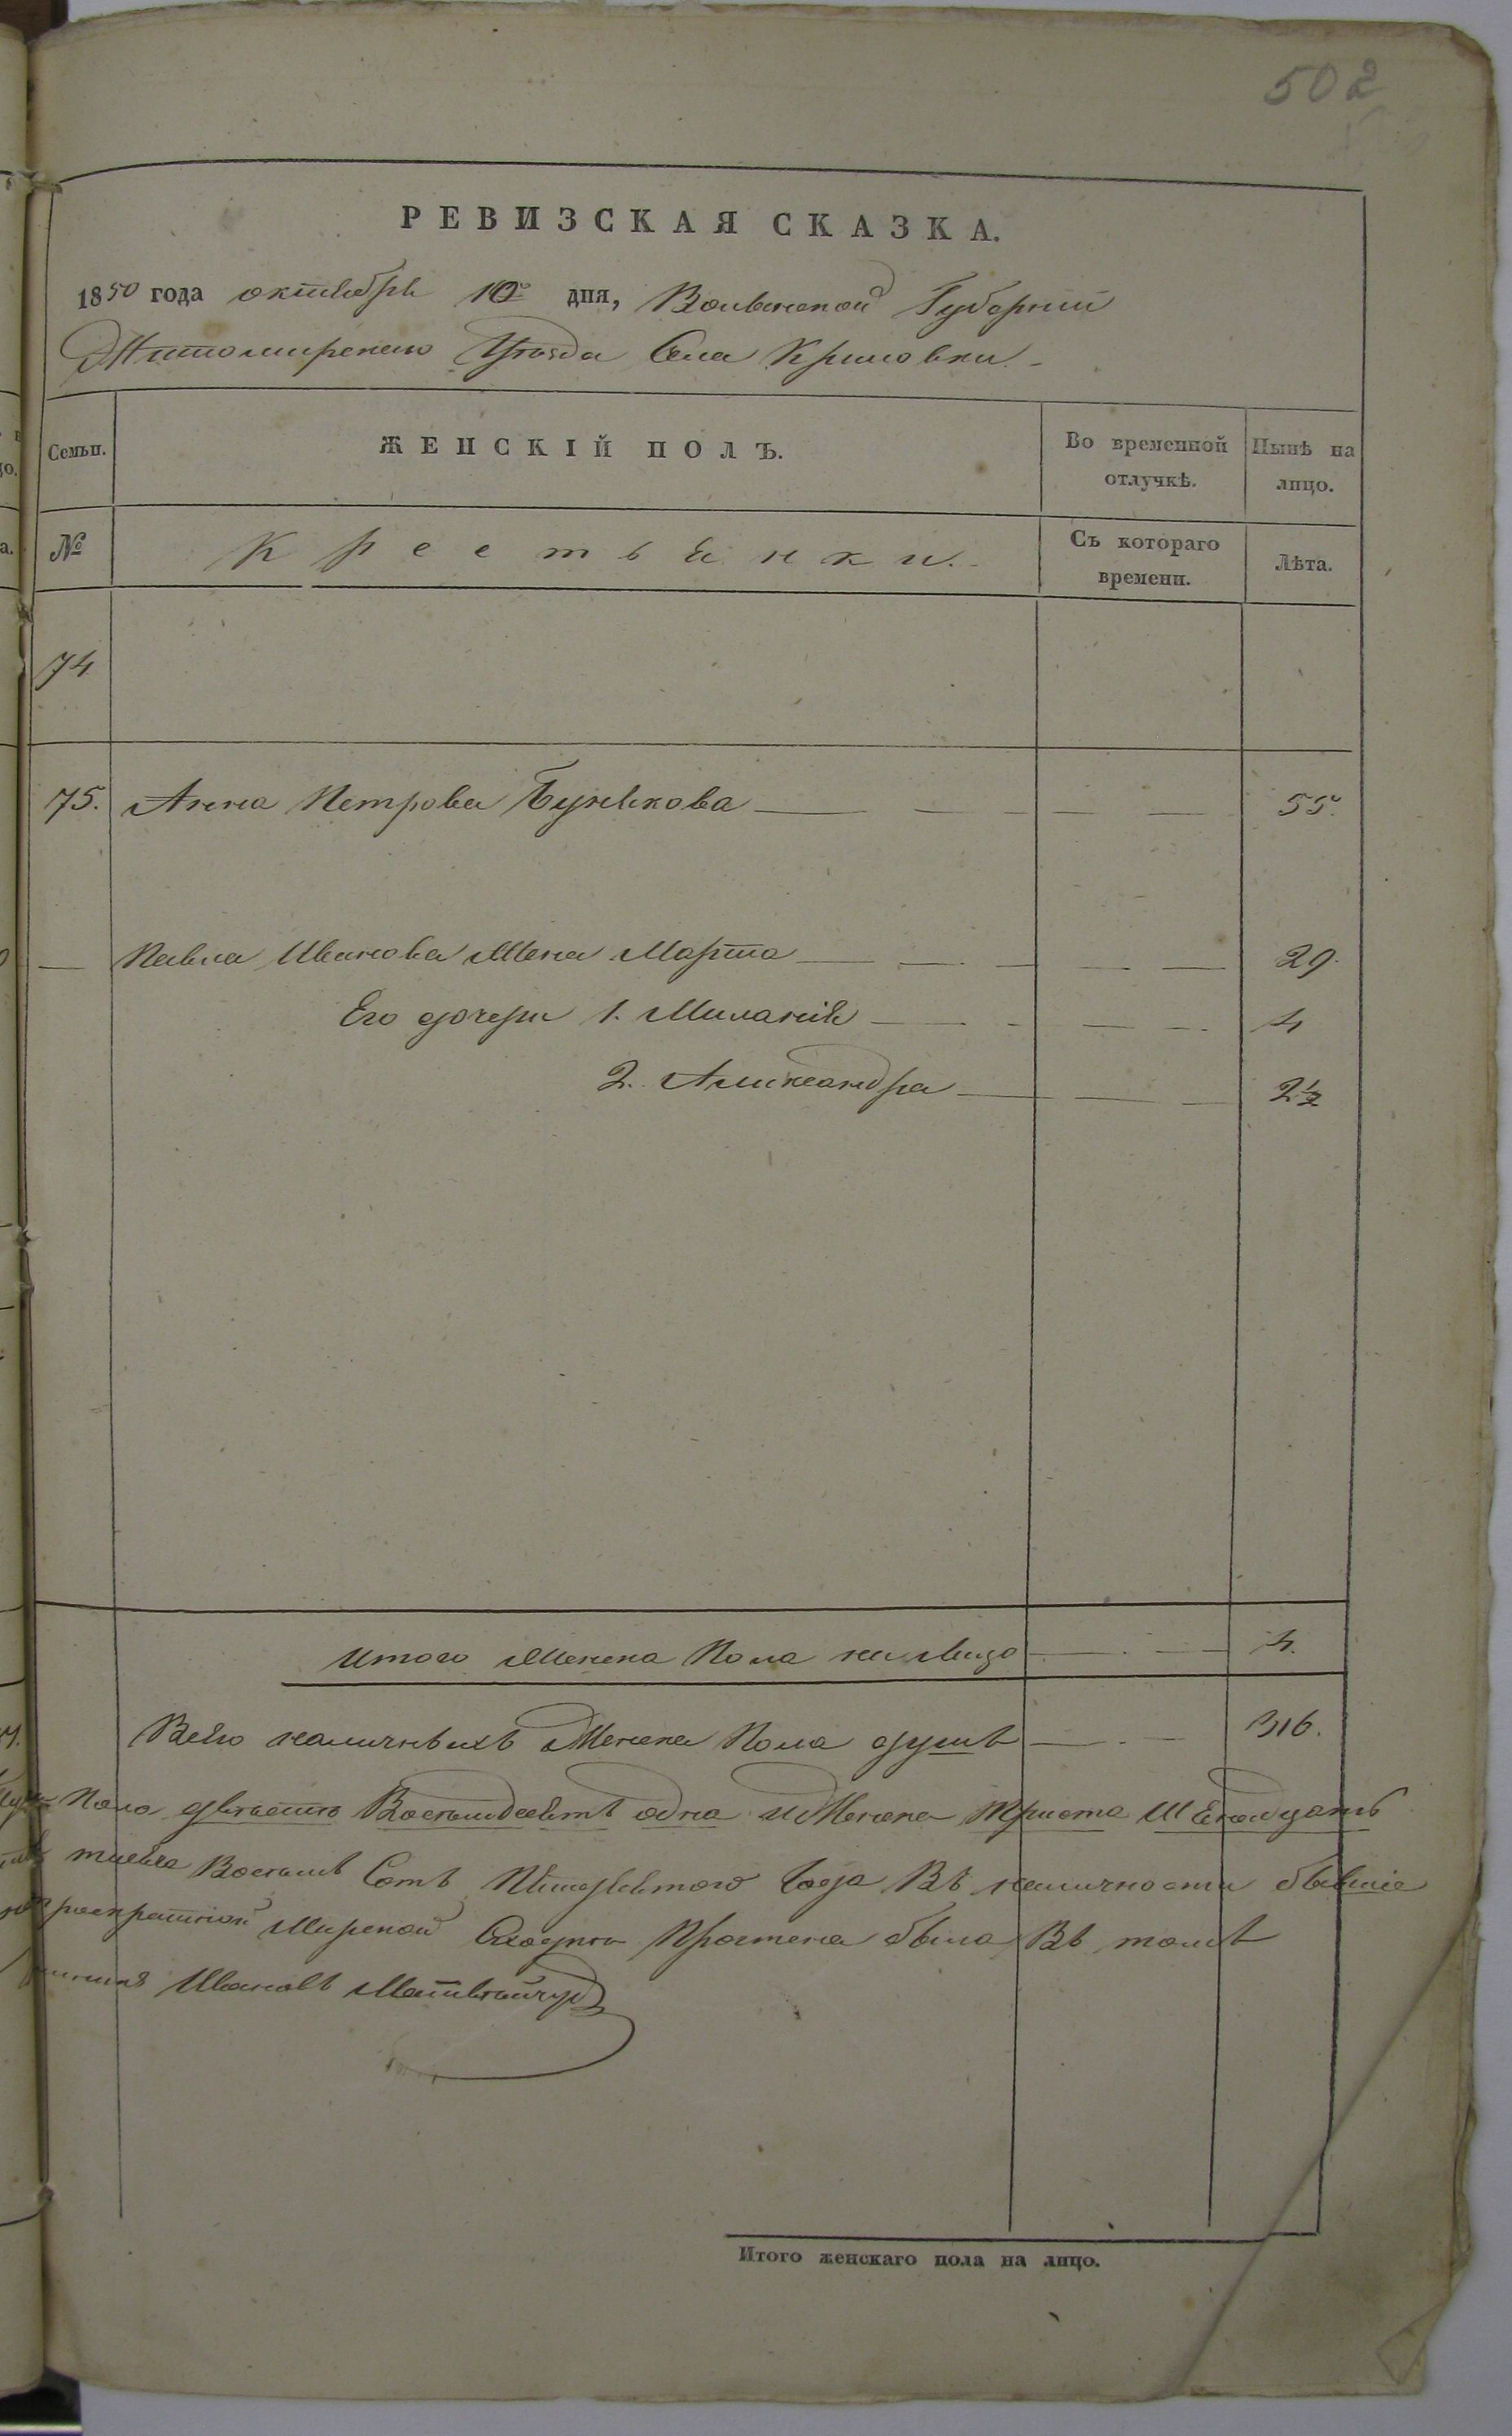 502
РЕВИЗСКАЯ СКАЗКА.
1850 года октября 10го дня, Волынской Губернии
Житомирскаго Уѣзда Села Криловки
Семьи. ЖЕНСКІЙ ПОЛЪ. Во временной отлучкѣ. Нынѣ на лицо.
№ Крестьянки. Съ котораго времени. Лѣта.
74
75. Анна Петрова Бунякова 55.
Павла Иванова Жена Марта 29.
Его дочери 1. Миланія 4
2. Александра 2½
Итого Женска Пола на лицо 4.
Всего наличныхъ Женска Пола душъ 316.
Пола двѣсти Восемдесятъ одна и Женска Триста Шеснадцать
тысяча Восемь Сотъ Пятидесятого Года Въ наличности бывшіе
Мирской Сходки Прочтена была Въ томъ
Ивановъ
Итого женскаго пола на лицо.